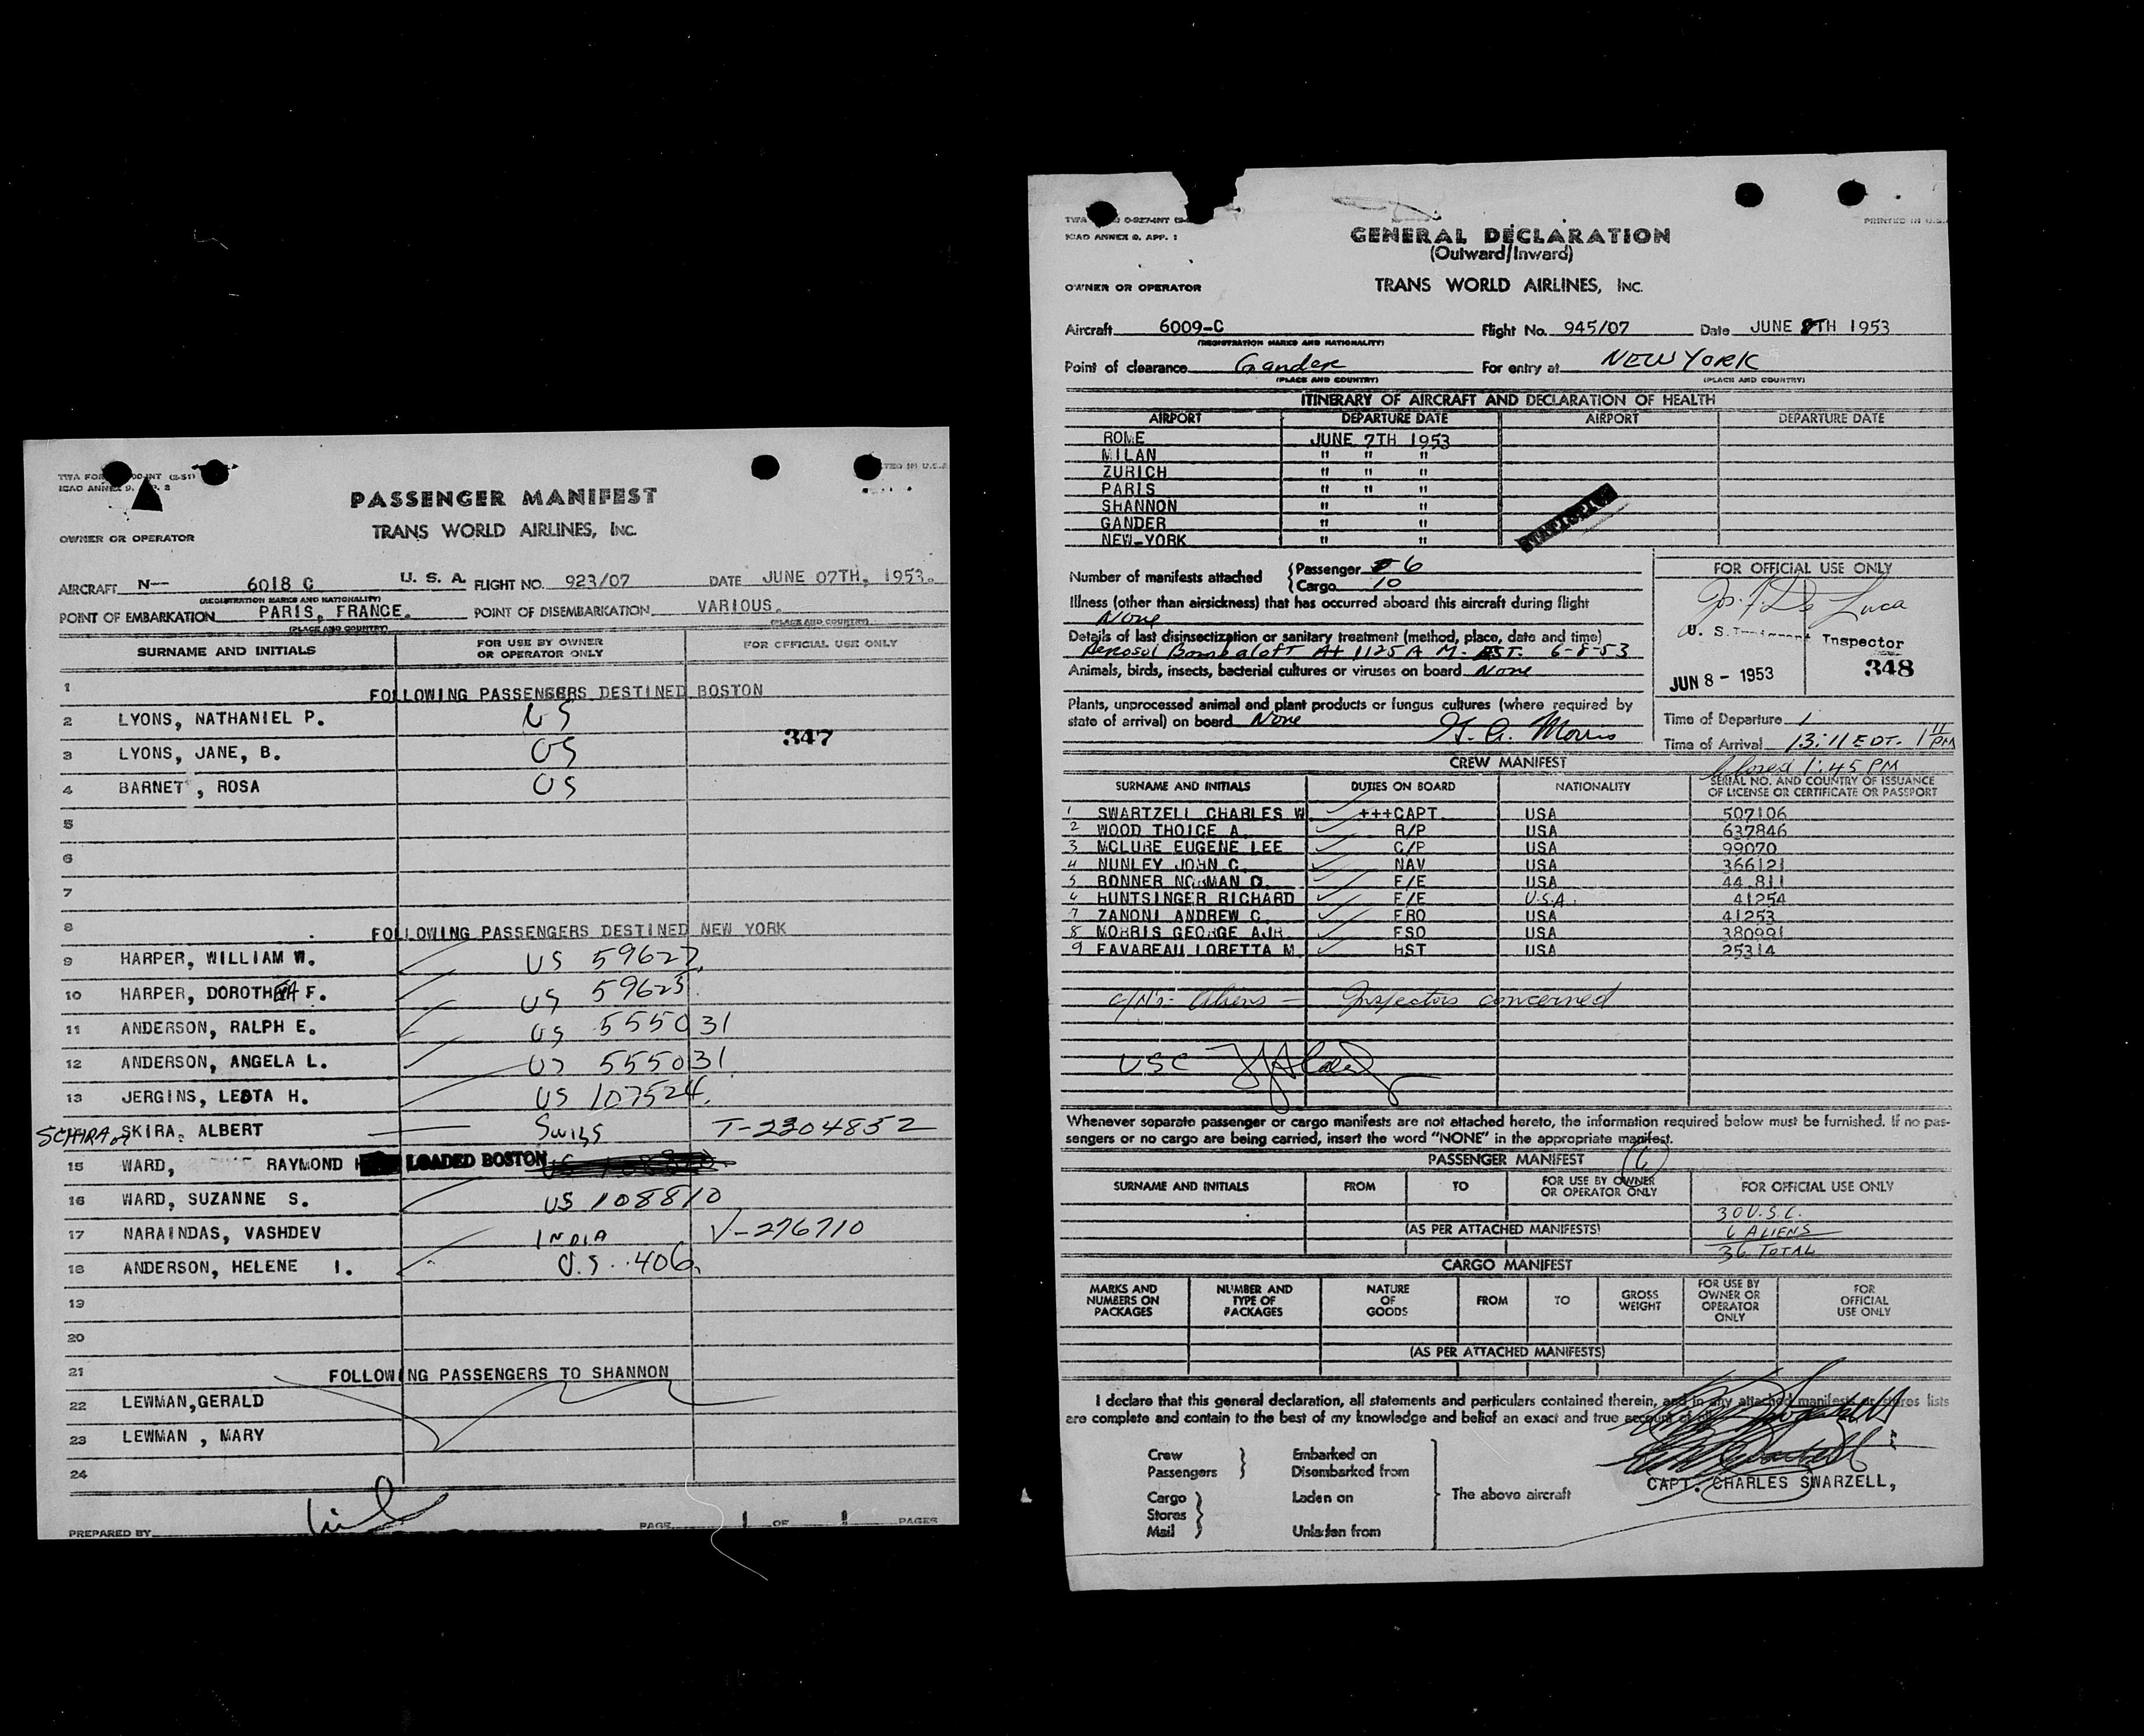 PASSENGER MANIFEST
TRANS WORLD AIRLINES, INC.
OWNER OR OPERATOR
AIRCRAFT N-- 6018 C U. S. A. FLIGHT NO. 923/07 DATE JUNE 07TH, 1953.
(REGISTRATION MARKS AND NATIONALITY)
POINT OF EMBARKATION PARIS, FRANCE. POINT OF DISEMBARKATION VARIOUS.
(PLACE AND COUNTRY) (PLACE AND COUNTRY)
SURNAME AND INITIALS FOR USE BY OWNER OR OPERATOR ONLY FOR OFFICIAL USE ONLY
1 FOLLOWING PASSENGERS DESTINED BOSTON
2 LYONS, NATHANIEL P. US
347
3 LYONS, JANE, B. US
4 BARNET , ROSA US
5
6
7
8 FOLLOWING PASSENGERS DESTINED NEW YORK
9 HARPER, WILLIAM W. US 59627
10 HARPER, DOROTHEA F. US 59625
11 ANDERSON, RALPH E. US 555031
12 ANDERSON, ANGELA L. US 555031
13 JERGINS, LEOTA H. US 107524
SCHIRA or SKIRA, ALBERT Swiss T-2304852
15 WARD, RAYMOND LOADED BOSTON
16 WARD, SUZANNE S. US 108810
17 NARAINDAS, VASHDEV INDIA V-276710
18 ANDERSON, HELENE I. U.S. 406
19
20
21 FOLLOWING PASSENGERS TO SHANNON
22 LEWMAN,GERALD
23 LEWMAN , MARY
24
PREPARED BY PAGE 1 OF 1 PAGES
ICAO ANNEX 9, APP. 1
PRINTED IN U.S.A
GENERAL DECLARATION
(Outward/Inward)
OWNER OR OPERATOR TRANS WORLD AIRLINES, INC.
Aircraft 6009-C Flight No. 945/07 Date JUNE 8TH 1953
(REGISTRATION MARKS AND NATIONALITY)
Point of clearance Gander For entry at NEW YORK
(PLACE AND COUNTRY) (PLACE AND COUNTRY)
ITINERARY OF AIRCRAFT AND DECLARATION OF HEALTH
AIRPORT DEPARTURE DATE AIRPORT DEPARTURE DATE
ROME JUNE 7TH 1953
MILAN " " "
ZURICH " " "
PARIS " " "
SHANNON " "
GANDER " "
NEW-YORK " "
STATISTICS
Number of manifests attached Passenger 6
Cargo 10
Illness (other than airsickness) that has occurred aboard this aircraft during flight
None
Details of last disinsectization or sanitary treatment (method, place, date and time)
Aerosol Bomb aloft At 1125 A M. EST. 6-8-53
Animals, birds, insects, bacterial cultures or viruses on board None
Plants, unprocessed animal and plant products or fungus cultures (where required by
state of arrival) on board None G. A. Morris
FOR OFFICIAL USE ONLY
Jos. J. De Luca
U. S. Immigrant Inspector
JUN 8 - 1953 348
Time of Departure
Time of Arrival 13:11 EDT. 1 11 PM
Closed 1:45 PM
CREW MANIFEST
SURNAME AND INITIALS DUTIES ON BOARD NATIONALITY SERIAL NO. AND COUNTRY OF ISSUANCE OF LICENSE OR CERTIFICATE OR PASSPORT
1 SWARTZELL CHARLES W +++CAPT USA 507106
2 WOOD THOICE A. R/P USA 637846
3 MCLURE EUGENE LEE C/P USA 99070
4 NUNLEY JOHN C. NAV USA 366121
5 BONNER NORMAN D. F/E USA 44.811
6 HUNTSINGER RICHARD F/E U.S.A. 41254
7 ZANONI ANDREW C. FRO USA 41253
8 MORRIS GEORGE AJR. FSO USA 380991
9 FAVAREAU LORETTA M. HST USA 25314
Aliens - Inspectors concerned
USC
Whenever separate passenger or cargo manifests are not attached hereto, the information required below must be furnished. If no pas-
sengers or no cargo are being carried, insert the word "NONE" in the appropriate manifest.
PASSENGER MANIFEST (6)
SURNAME AND INITIALS FROM TO FOR USE BY OWNER OR OPERATOR ONLY FOR OFFICIAL USE ONLY
30 U.S.C.
(AS PER ATTACHED MANIFESTS) 6 ALIENS
36 TOTAL
CARGO MANIFEST
MARKS AND NUMBERS ON PACKAGES NUMBER AND TYPE OF PACKAGES NATURE OF GOODS FROM TO GROSS WEIGHT FOR USE BY OWNER OR OPERATOR ONLY FOR OFFICIAL USE ONLY
(AS PER ATTACHED MANIFESTS)
I declare that this general declaration, all statements and particulars contained therein, and in any attached manifests or stores lists
are complete and contain to the best of my knowledge and belief an exact and true account of
Crew Embarked on
Passengers Disembarked from
Cargo Laden on The above aircraft
Stores
Mail Unladen from
CAPT. CHARLES SWARZELL,